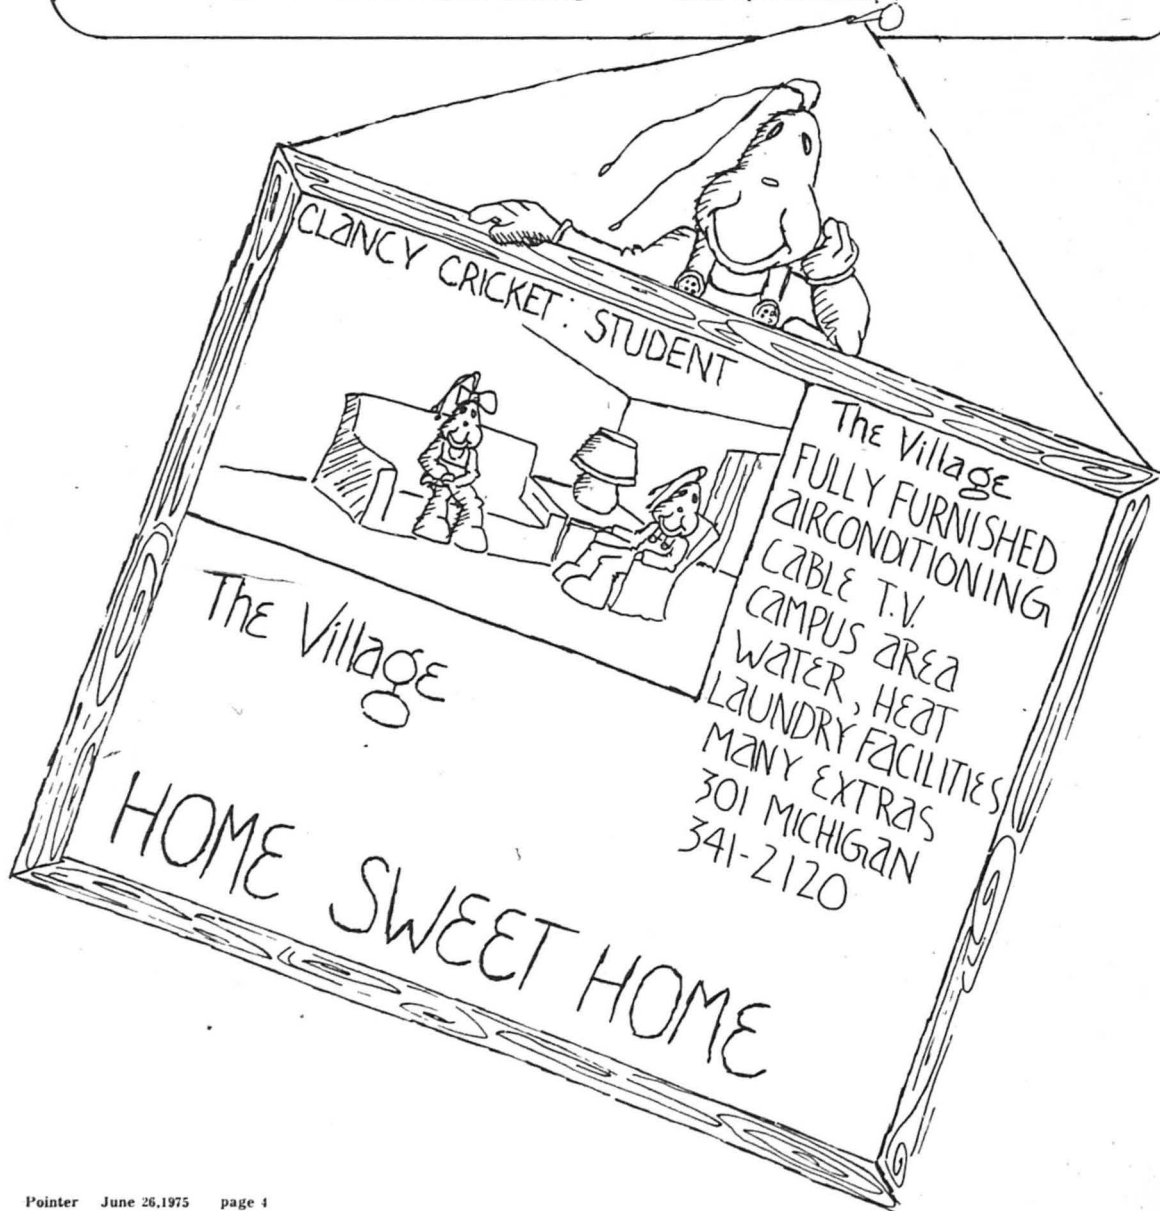 CLANCY CRICKET: STUDENT
The Village
FULLY FURNISHED
AIRCONDITIONING
CABLE T.V.
CAMPUS AREA
WATER, HEAT
LAUNDRY FACILITIES
MANY EXTRAS
301 MICHIGAN
341-2120
The Village
HOME SWEET HOME
Pointer June 26,1975 page 4